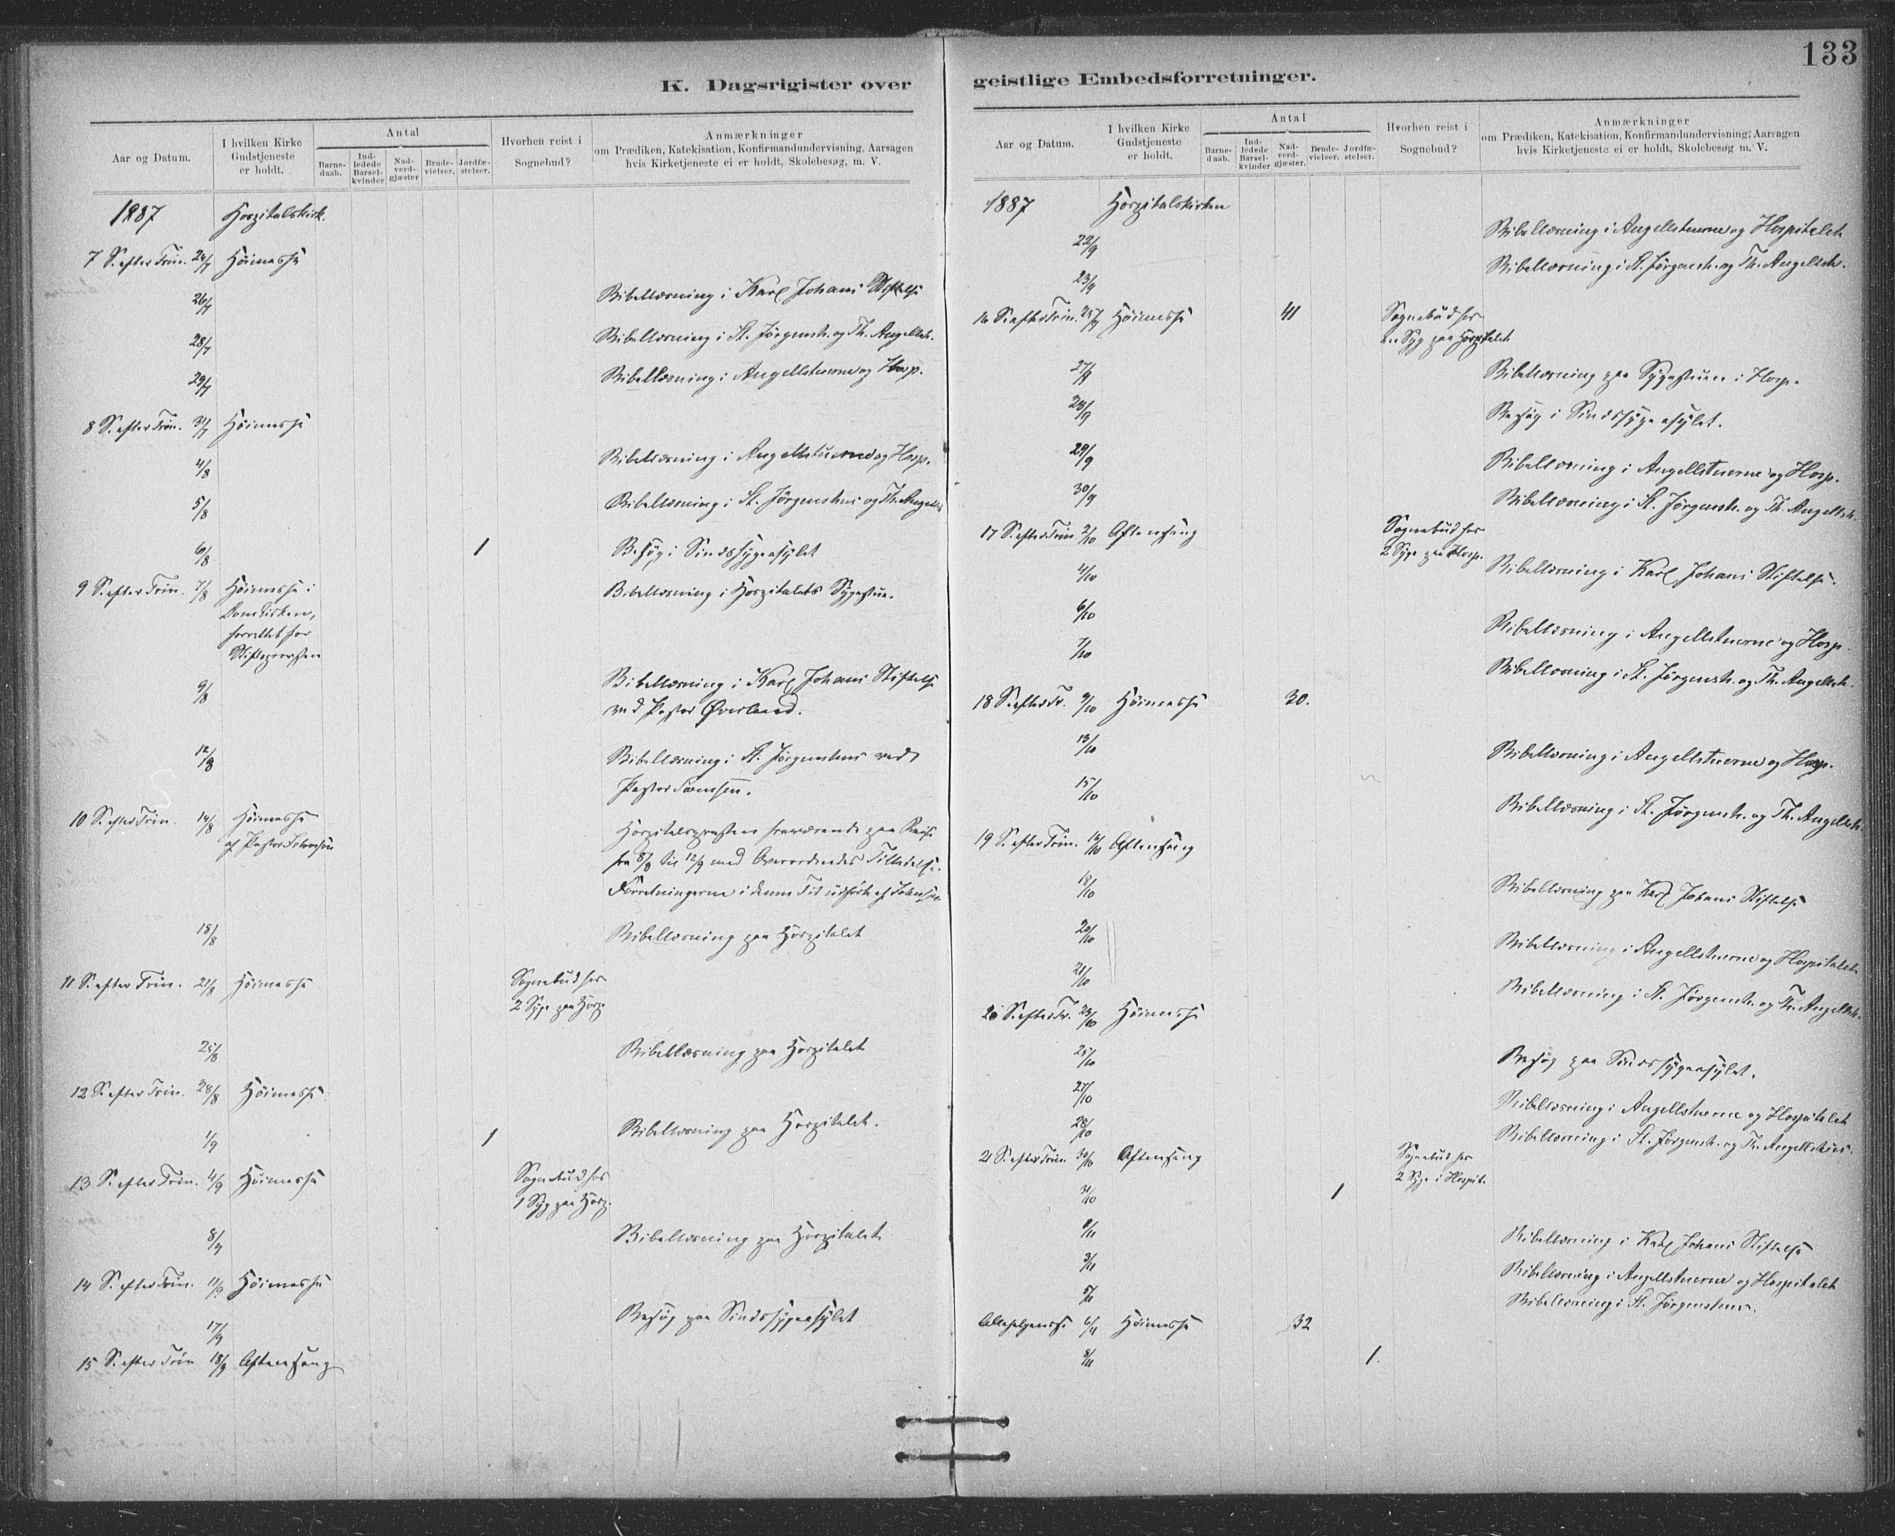 133
K. Dagsrigister over
Aar og Datum.
I hvilken Kirke Gudstjeneste er holdt.
Antal
Barne-daab.
Ind-ledede Barsel-kvinder
Nad-verd-gjæster
Brude-vielser.
Jordfæ-stelser.
Hvorhen reist i Sognebud?
Anmærkninger
om Prædiken, Katekisation, Konfirmandundervisning, Aarsagen
hvis Kirketjeneste ei er holdt, Skolebesøg, m. V.
1887 Hospitalskirk.
7 S. efter Trin. 24/7 Høimesse
26/7 Bibellæsning i Karl Johans Stiftelse
28/7 Bibellæsning i St. Jørgensh. og Th. Angellsh.
29/7 Bibellæsning i Angellstuerne og Hosp.
8 S. efter Trin. 31/7 Høimesse
4/8 Bibellæsning i Angellstuerne og Hosp.
5/8 Bibellæsning i St. Jørgenshus og Th. Angells
6/8 1 Besøg i Sindssygeasylet
9 S. efter Trin. 7/8 Høimesse i Bibellæsning i Hospitalets Sygestue.
Domkirken,
forrettet for
Stiftsprovsten
9/8 Bibellæsning i Karl Johans Stiftelse
ved Pastor Øverland.
12/8 Bibellæsning i St. Jørgenshus ved
Pastor
10 S. efter Trin. 14/8 Høimesse Hospitalspræsten fraværende paa Reise
af Pastor fra 8/8 til 12/9 med Overordnedes Tilladelse.
Forretningerne i denne Tid udførte af
18/8 Bibellæsning paa Hospitalet
11 S. efter Trin. 21/8 Høimesse Sognebud hos
2 Syge paa Hosp.
25/8 Bibellæsning paa Hospitalet
12 S. efter Trin. 28/8 Høimesse
1/9 1 Bibellæsning paa Hospitalet.
13 S. efter Trin. 4/9 Høimesse Sognebud hos
1 Syg paa Hosp.
8/9 Bibellæsning paa Hospitalet
14 S. efter Trin. 11/9 Høimesse
17/9 Besøg paa Sindssygeasylet
15 S. efter Trin 18/9 Aftensang
geistlige Embedsforretninger.
Aar og Datum.
I hvilken Kirke Gudstjeneste er holdt.
Antal
Barne-daab.
Ind-ledede Barsel-kvinder
Nad-verd-gjæster.
Brude-vielser.
Jordfæ-stelser.
Hvorhen reist i Sognebud?
Anmærkninger
om Prædiken, Katekisation, Konfirmandundervisning, Aarsagen
hvis Kirketjeneste ei er holdt, Skolebesøg m. V.
1887 Hospitalskirken
22/9 Bibellæsning i Angellstuerne og Hospitalet
23/9 Bibellæsning i St. Jørgensh. og Th. Angellsh.
16 S. efter Trin. 25/9 Høimesse 41 Sognebud hos
en Syg paa Hospitalet
27/9 Bibellæsning paa Sygestuen i Hosp.
28/9 Besøg i Sindssygeasylet.
29/9 Bibellæsning i Angellstuerne og Hosp.
30/9 Bibellæsning i St. Jørgensh. og Th. Angellsh.
17 S. efter Trin. 2/10 Aftensang Sognebud hos
2 Syge paa Hosp.
4/10 Bibellæsning i Karl Johans Stiftelse.
6/10 Bibellæsning i Angellstuerne og Hosp.
7/10 Bibellæsning i St. Jørgensh. og Th. Angellsh.
18 S. efter Tr. 9/10 Høimesse 30.
13/10 Bibellæsning i Angellstuerne og Hosp.
15/10 Bibellæsning i St. Jørgensh. og Th. Angellsh.
19 S. efter Trin. 16/10 Aftensang
18/10 Bibellæsning paa Karl Johans Stiftelse
20/10 Bibellæsning i Angellstuerne og Hospitalet
21/10 Bibellæsning i St. Jørgensh. og Th. Angellsh.
20 S. efter Tr. 23/10 Høimesse
25/10 Besøg paa Sindssygeasylet.
27/10 Bibellæsning i Angellstuerne og Hospitalet
28/10 Bibellæsning i St. Jørgensh. og Th. Angellshus.
21 S. efter Trin. 30/10 Aftensang Sognebud hos
2 Syge i Hospit.
31/10 1
Bibellæsning i Karl Johans Stiftelse
3/11 Bibellæsning i Angellstuerne og Hospitalet
5/11 Bibellæsning i St. Jørgenshus.
Allehelgensf. 6/11 Høimesse 32
8/11 1.